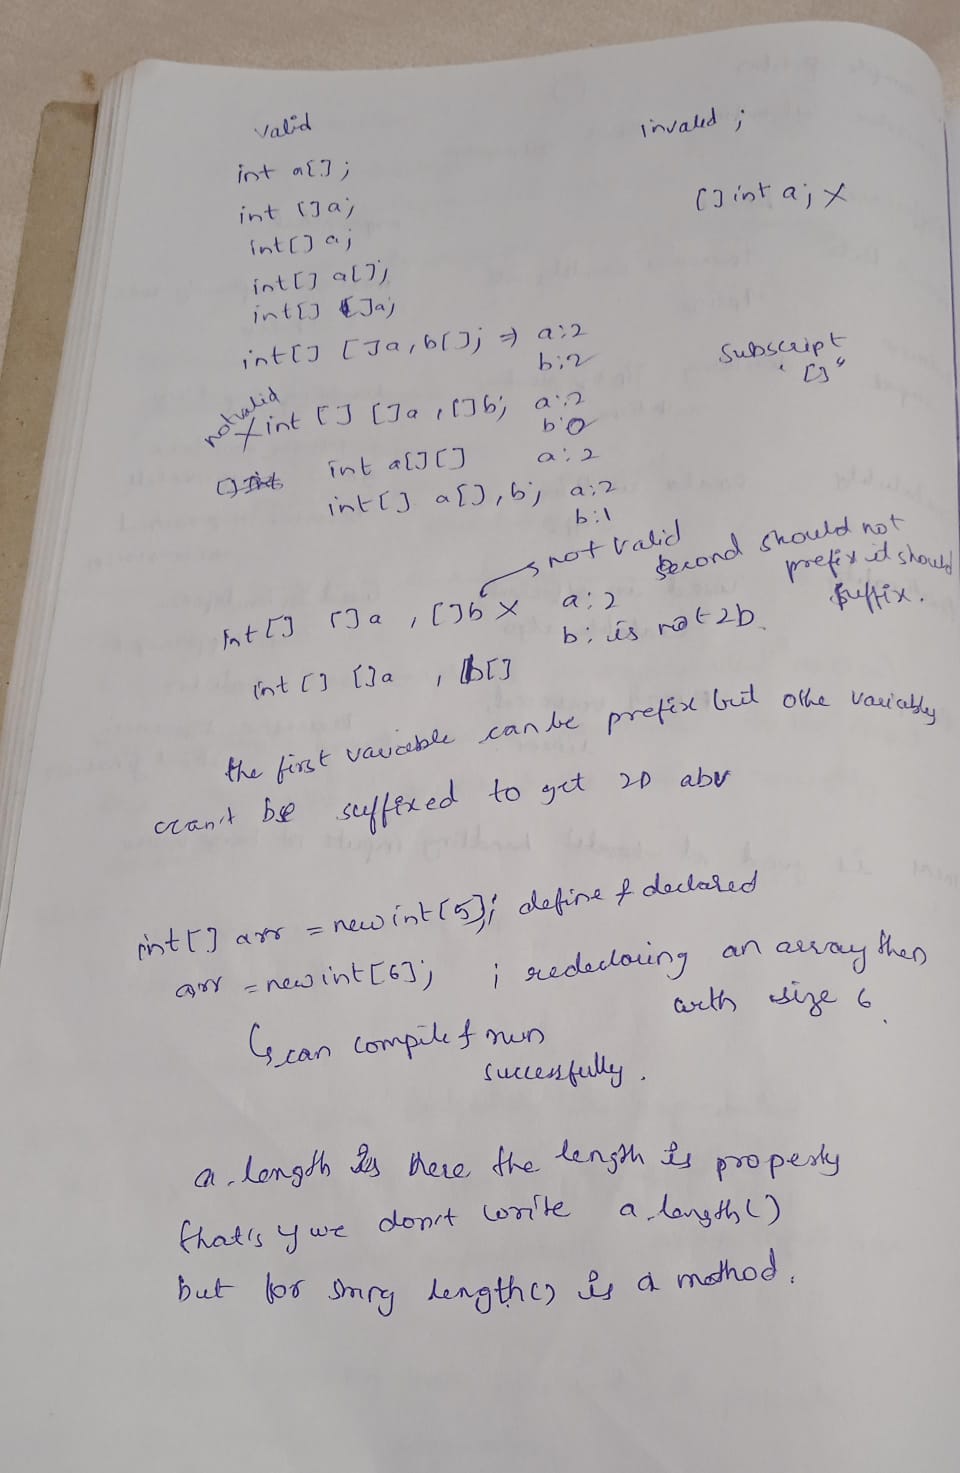 valid
invaled ;
int a[];
int []a;
[] int a; X
int[] a;
int[] a[];
int[] []a;
int[] []a, b[]; => a:2
b:2
Subscript
"[]"
not valid
X int [] []a, []b; a:2
b:0
int a[][] a:2
int[] a[], b; a:2
b:1
not valid
Second should not
prefix it should
suffix.
Int[] []a , []b X a:2
b: is not 2D.
int [] []a , b[]
the first variable can be prefix but othe variably
can't be suffixed to get 2D
int[] arr = new int[5]; define & declared
arr = new int[6]; ; redeclaring an array then
with size 6.
can compile & run
successfully.
a.length is here the length is property
that's y we don't write a.length()
but for length() is a method.